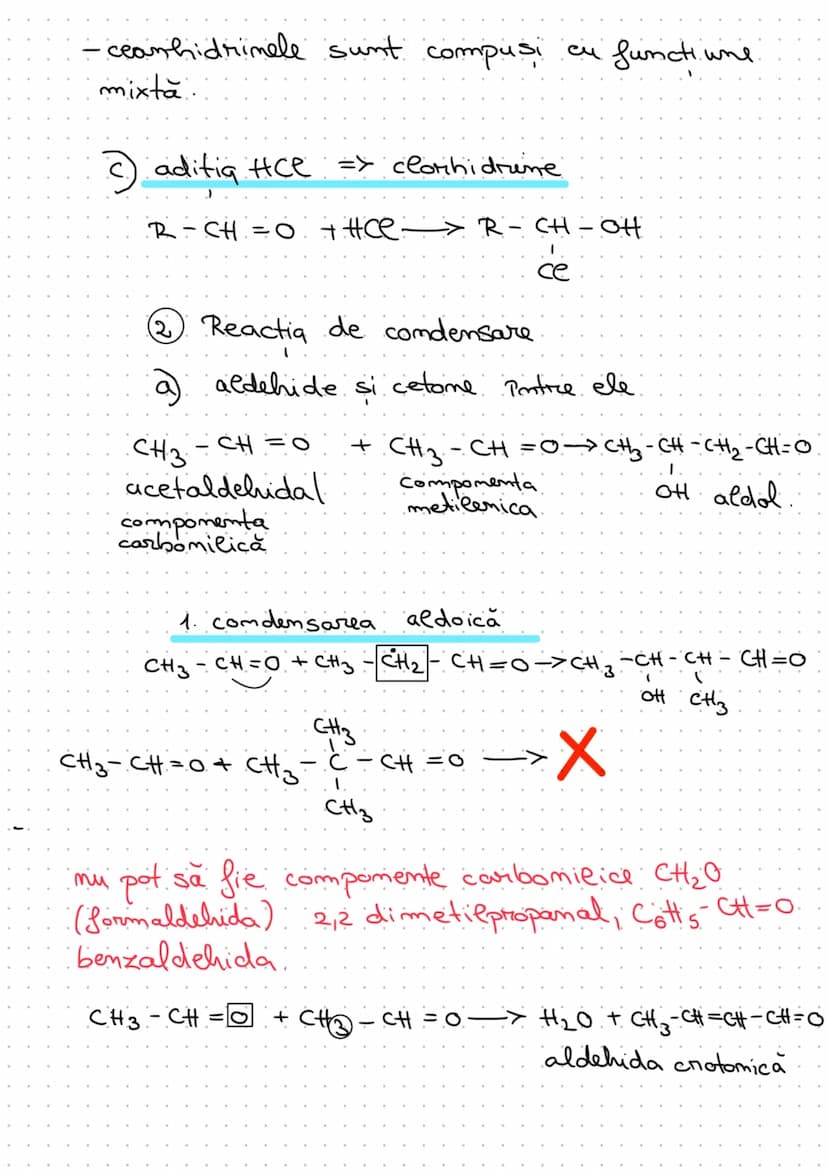 - ceanhidrinele sunt compuși cu funcțiune
mixtă.
c) adiția HCl => clorhidrine
R - CH = O + HCl → R - CH - OH
Cl
② Reacția de condensare
a) aldehide și cetone între ele
CH3 - CH = O + CH3 - CH = O → CH3 - CH - CH2 - CH = O
OH aldol.
acetaldehidal componenta
componenta metilenica
carbonilică
1. condensarea aldoică
CH3 - CH = O + CH3 - CH2 - CH = O → CH3 - CH - CH - CH = O
OH CH3
CH3
CH3 - CH = O + CH3 - C - CH = O → X
CH3
nu pot să fie componente carbonilice CH2O
(formaldehida) 2,2 dimetilpropanal, C6H5 - CH = O
benzaldehida.
CH3 - CH = O + CH3 - CH = O → H2O + CH3 - CH = CH - CH = O
aldehida crotonică